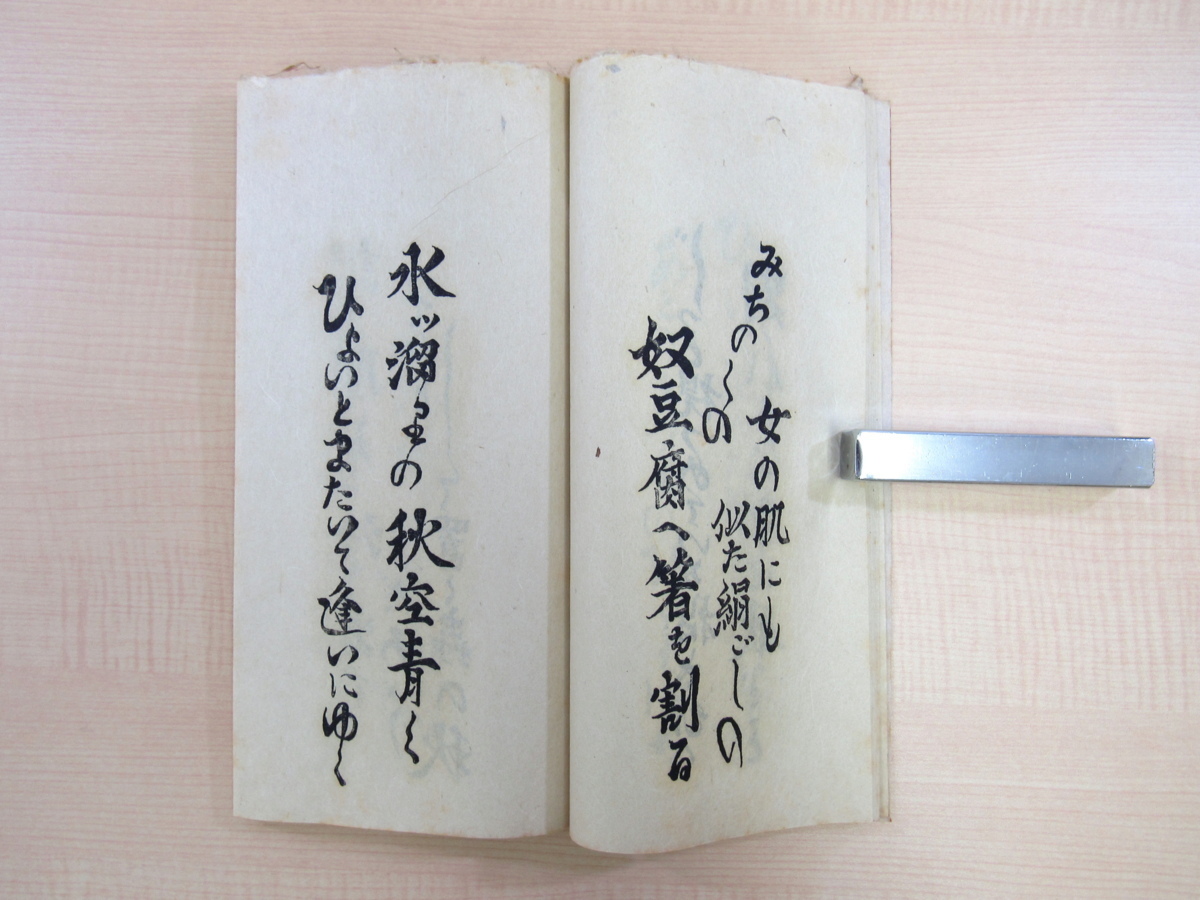 みちのくの
女の肌にも
似た絹ごしの
奴豆腐へ箸を割る
水ッ溜りの秋空青く
ひょいとまたいで逢いにゆく